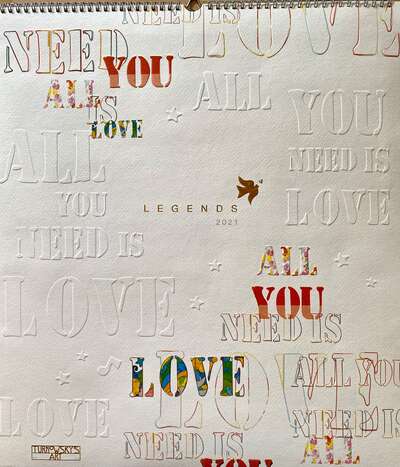 NEED IS
LOVE
NEED
YOU
ALL
IS
LOVE
ALL
YOU
NEED IS
LOVE
ALL
YOU
NEED IS
LOVE
LEGENDS
2021
ALL
YOU
NEED IS
LOVE
LOVE
ALL YOU
NEED IS
ALL
LOVE
NEED IS
YOU
TURKOWSKY'S
ART